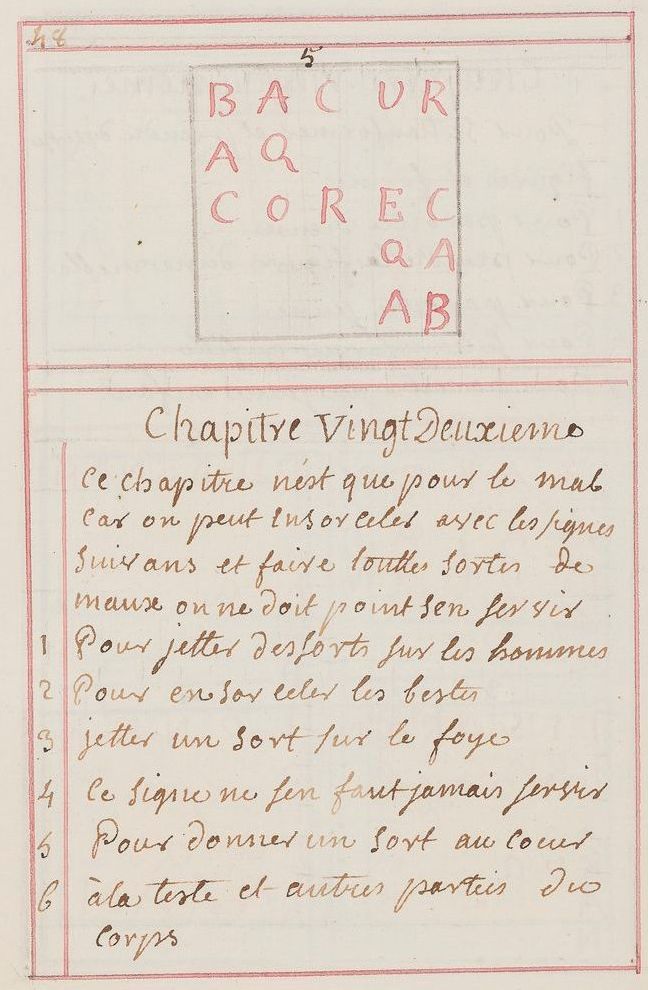 48
5
B A C U R
A Q
C O R E C
Q A
A B
Chapitre Vingt Deuxieme
Ce chapitre nést que pour le mal
Car on peut Ensorceler avec les signes
Suivans et faire touttes Sortes de
maux on ne doit point Sen servir
1 Pour jetter des sorts sur les hommes
2 Pour ensorceler les bestes
3 jetter un Sort sur le foye
4 Ce Signe ne sen faut jamais servir
5 Pour donner un Sort au Coeur
6 à la teste et autres parties du
Corps